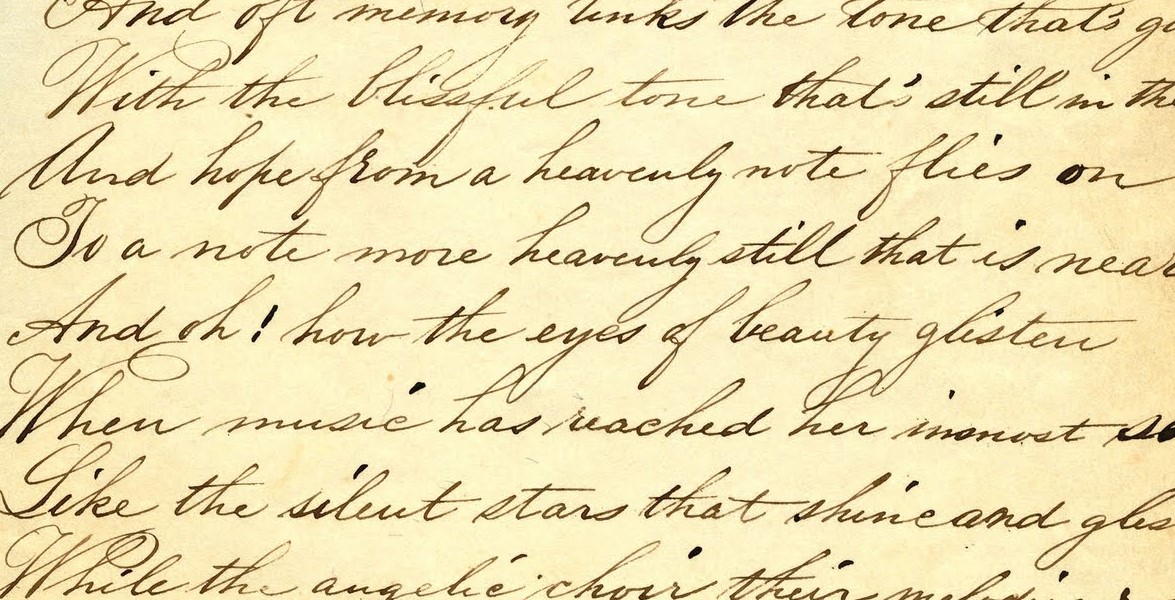 And oft memory links the tone that's
With the blissful tone that's still in
And hope from a heavenly note flies on
To a note more heavenly still that is near
And oh! how the eyes of beauty glisten
When music has reached her inmost
Like the silent stars that shine and
While the angelic choir their